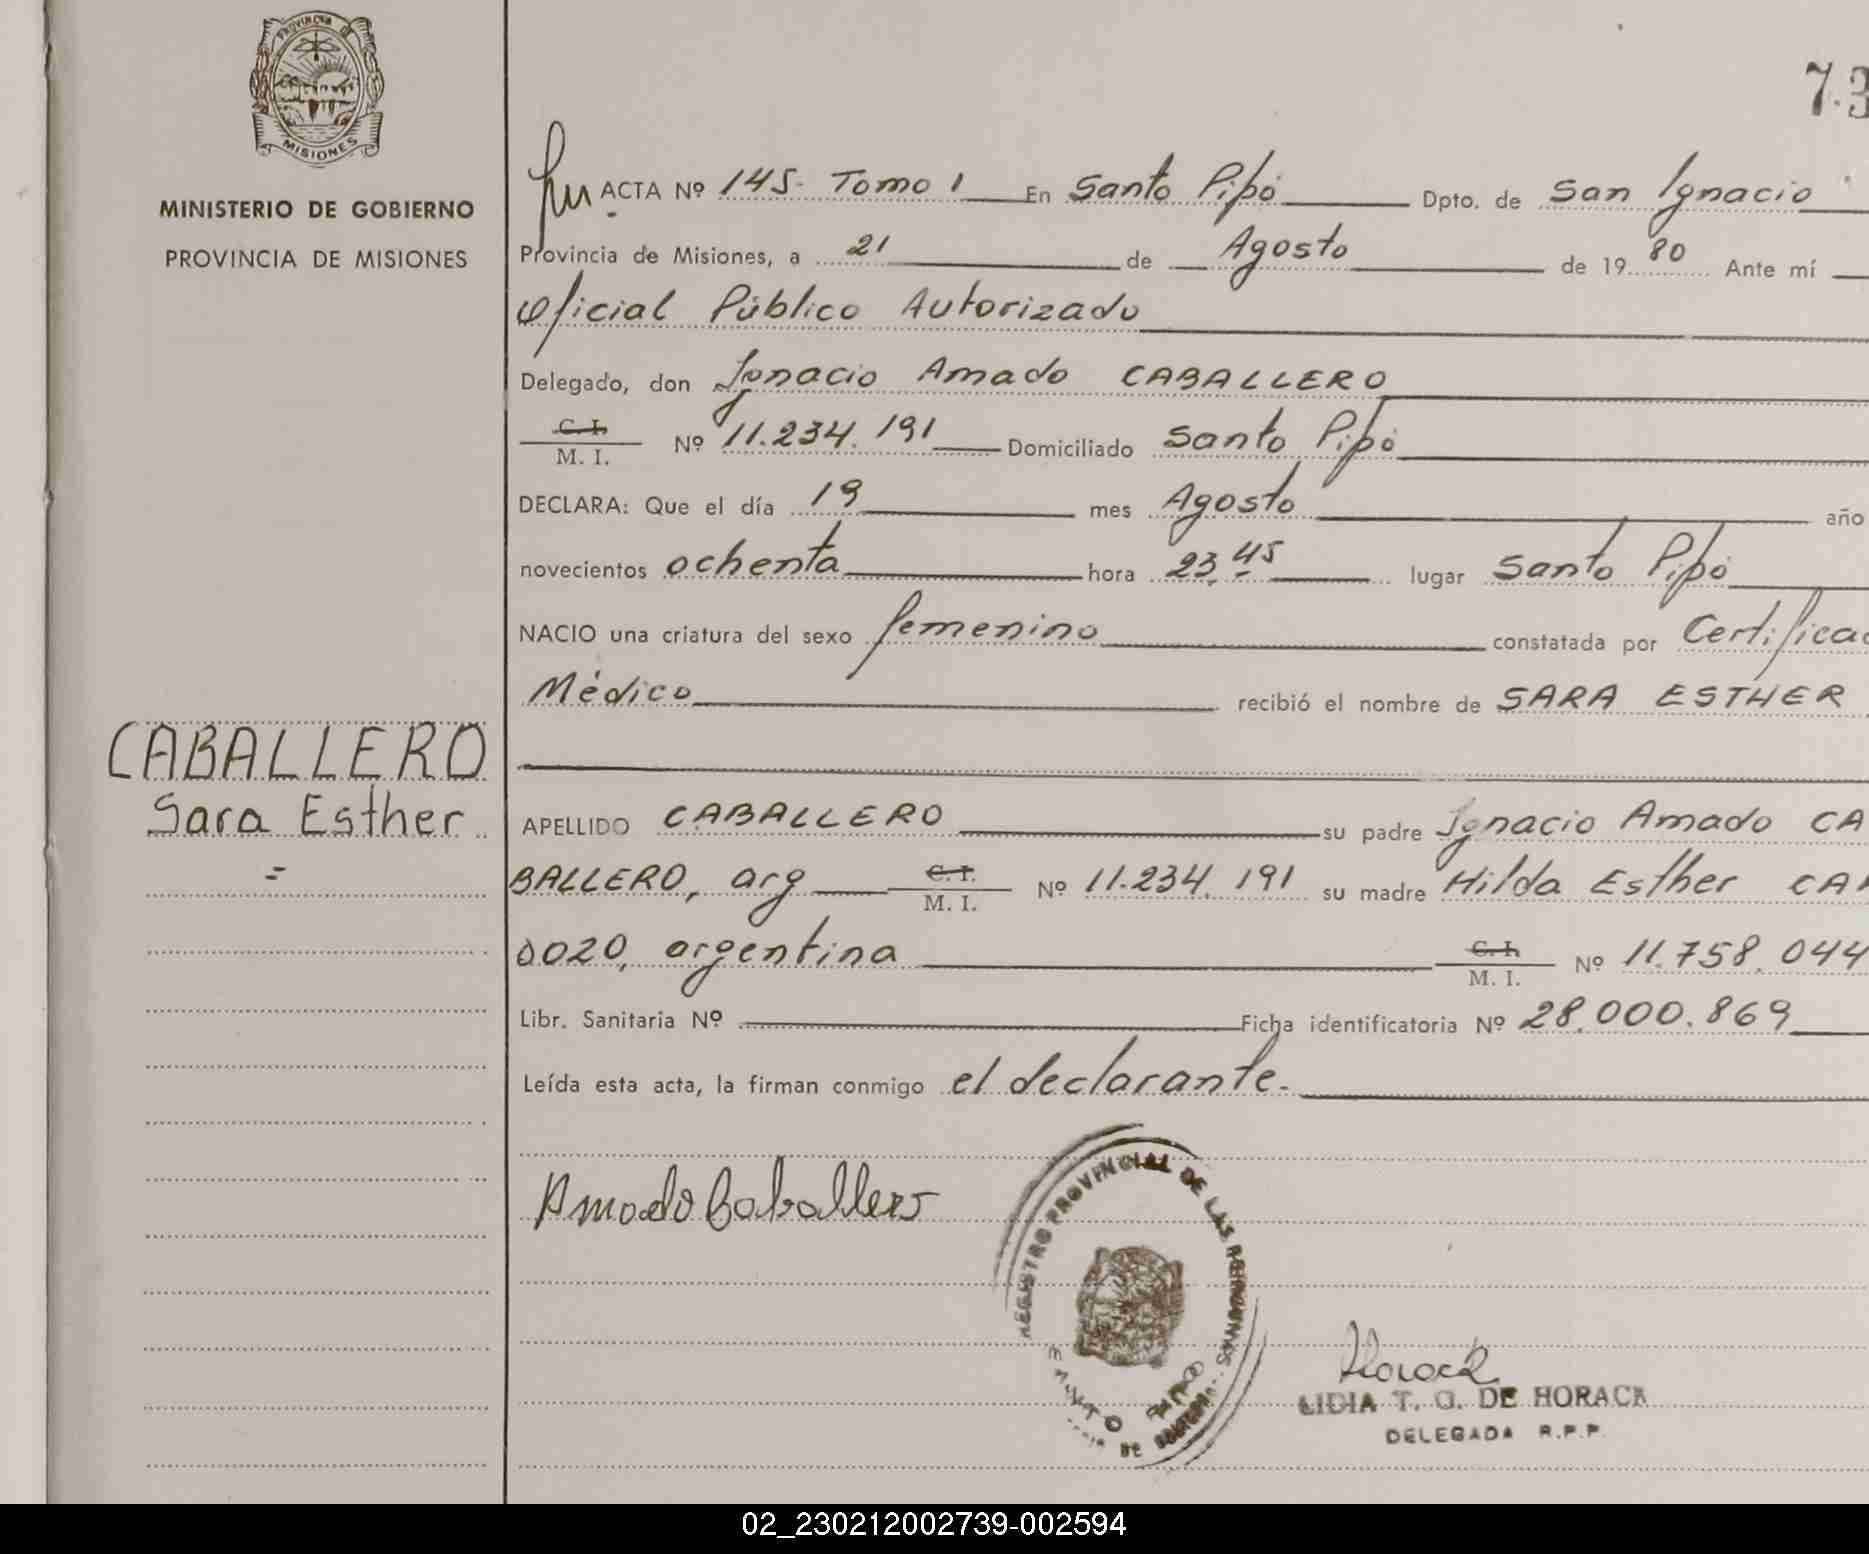 PROVINCIA DE
MISIONES
MINISTERIO DE GOBIERNO
PROVINCIA DE MISIONES
CABALLERO
Sara Esther
=
73
ACTA Nº 145- Tomo 1 En Santo Pipó Dpto. de San Ignacio
Provincia de Misiones, a 21 de Agosto de 1980 Ante mí
Oficial Público Autorizado
Delegado, don Ignacio Amado CABALLERO
C. I.
M. I. Nº 11.234.191 Domiciliado Santo Pipó
DECLARA: Que el día 19 mes Agosto año
novecientos ochenta hora 23,45 lugar Santo Pipó
NACIO una criatura del sexo femenino constatada por Certificad
Médico recibió el nombre de SARA ESTHER
APELLIDO CABALLERO su padre Ignacio Amado CA
BALLERO, arg C. I. M. I. Nº 11.234.191 su madre Hilda Esther CAR
DOZO, argentina C. I. M. I. Nº 11.758.044
Libr. Sanitaria Nº Ficha identificatoria Nº 28.000.869
Leída esta acta, la firman conmigo el declarante.
Amado Caballero
REGISTRO PROVINCIAL DE LAS PERSONAS
SANTO PIPO
Horack
LIDIA T. G. DE HORACK
DELEGADA R.P.P.
02_230212002739-002594